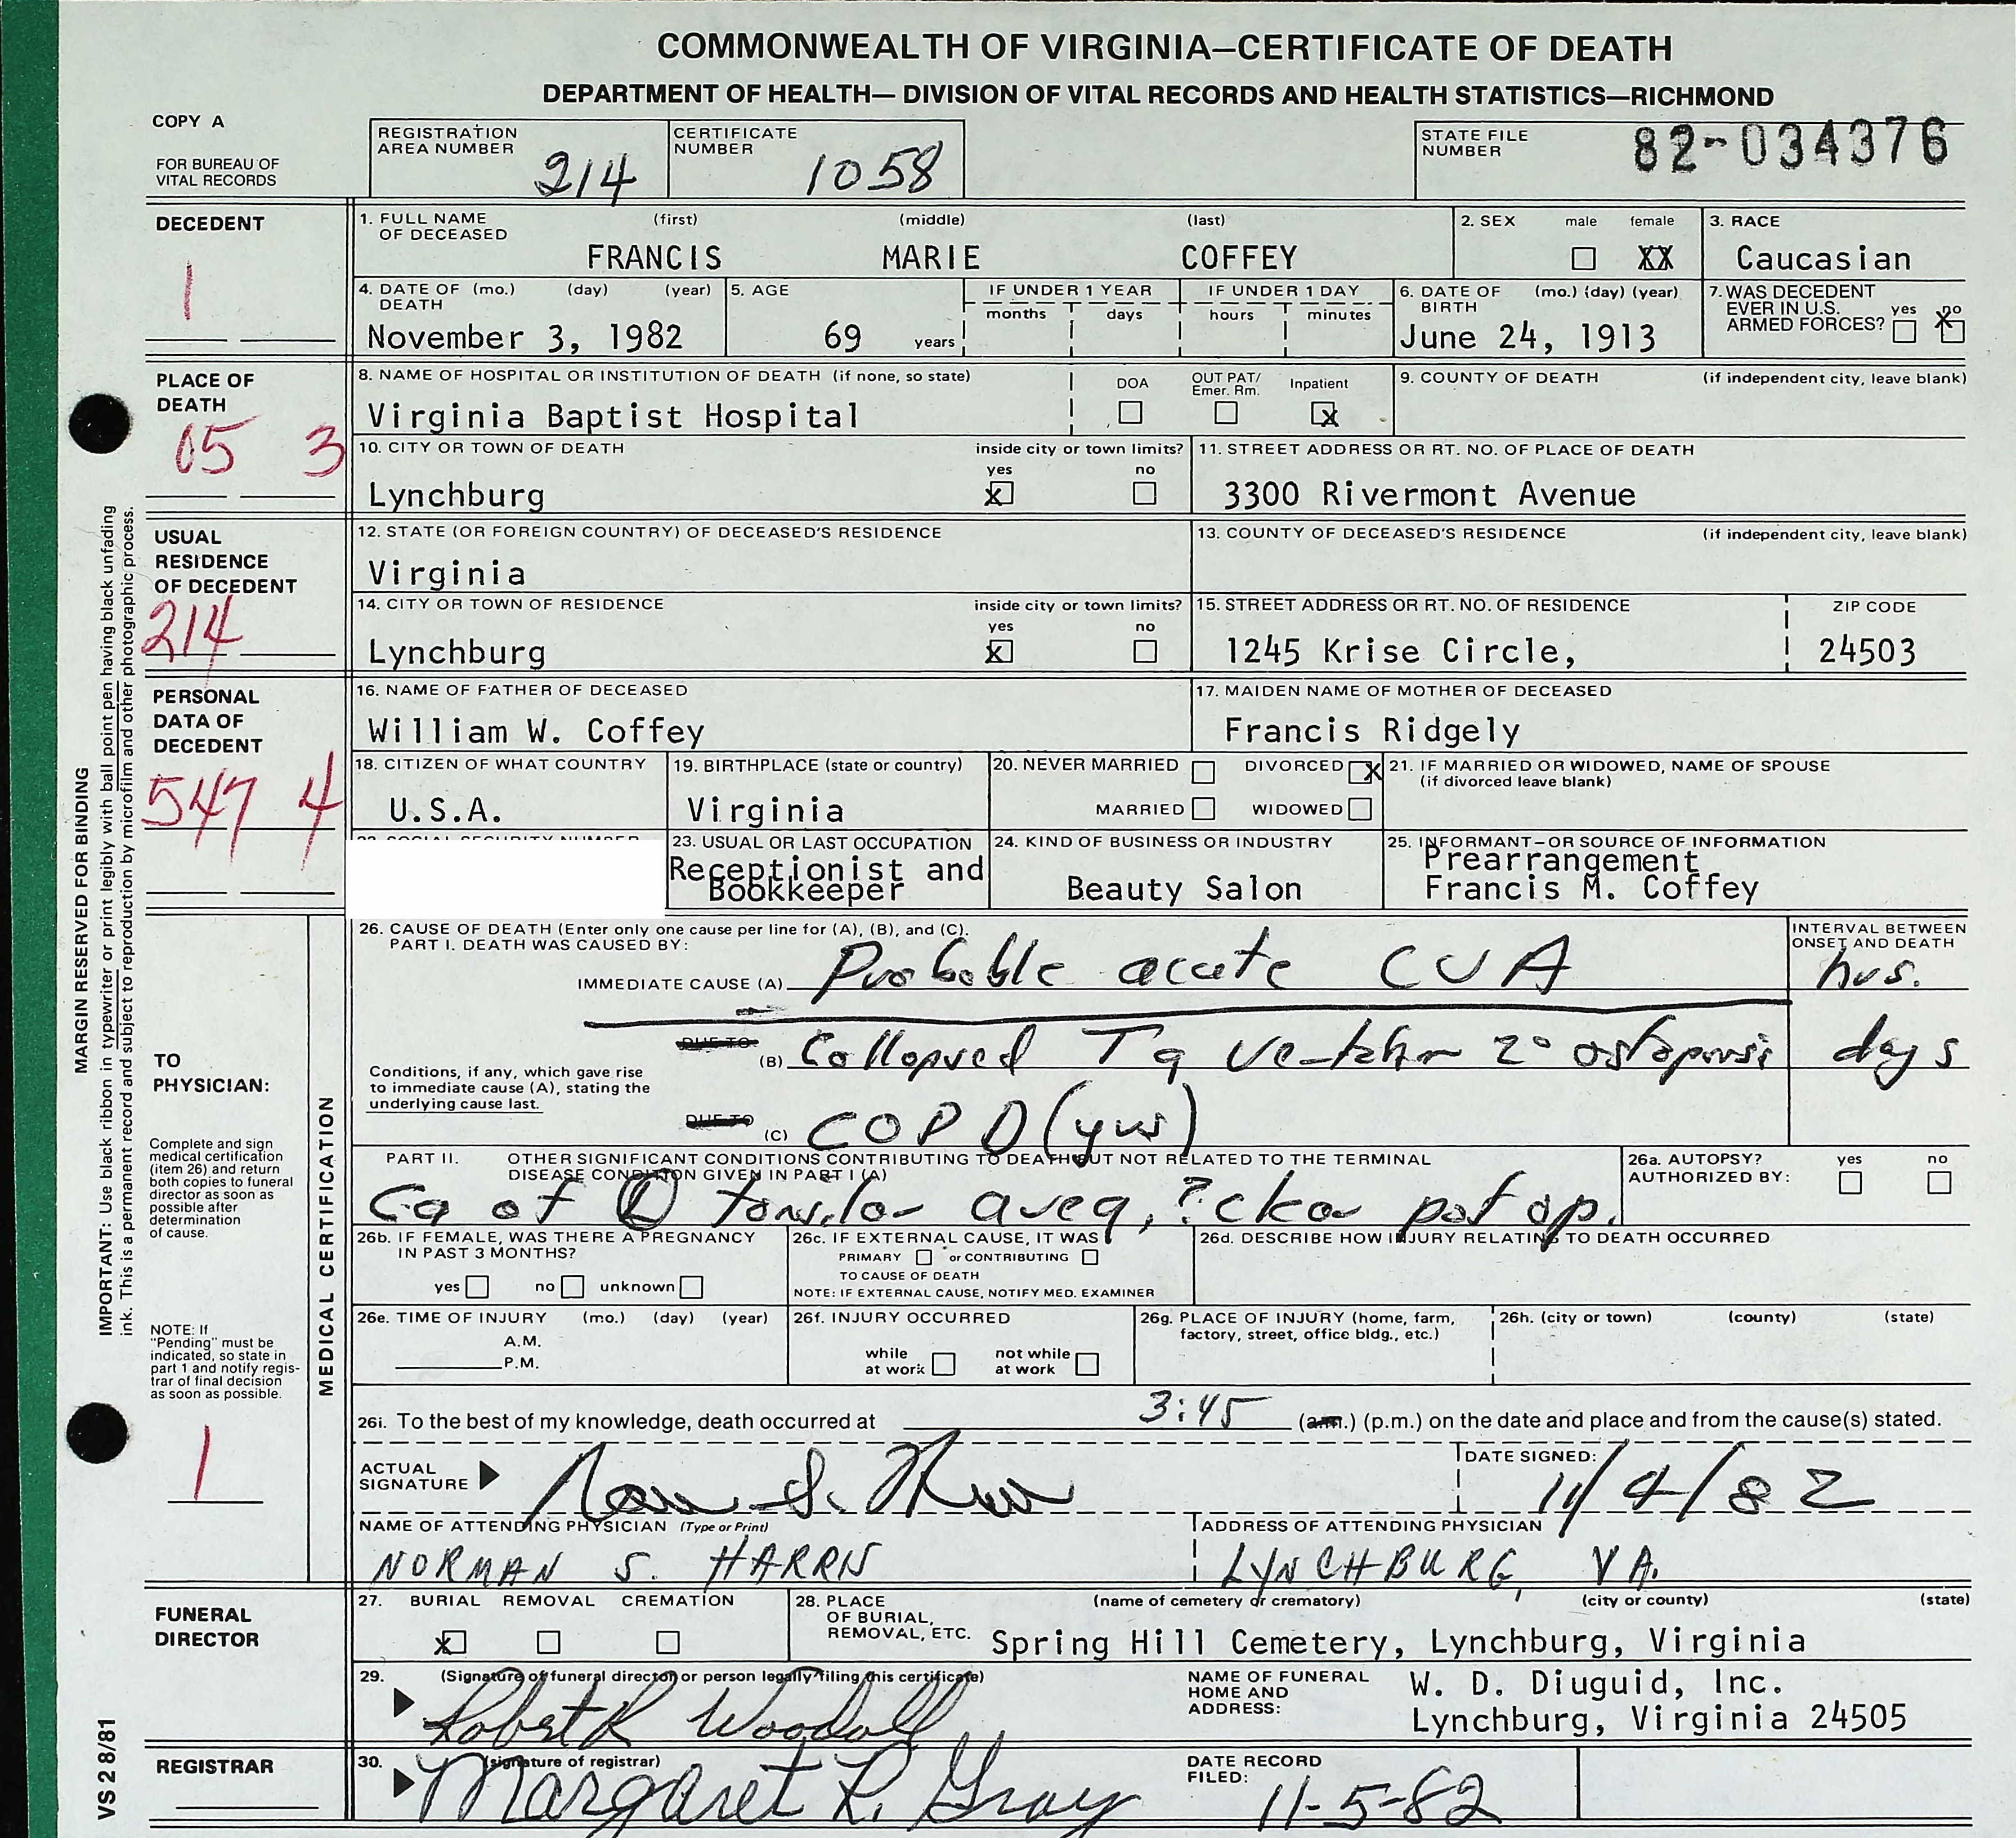 COMMONWEALTH OF VIRGINIA—CERTIFICATE OF DEATH
DEPARTMENT OF HEALTH— DIVISION OF VITAL RECORDS AND HEALTH STATISTICS—RICHMOND
COPY A
FOR BUREAU OF
VITAL RECORDS
REGISTRATION
AREA NUMBER 214
CERTIFICATE
NUMBER 1058
STATE FILE
NUMBER 82-034376
DECEDENT
1
1. FULL NAME (first) (middle) (last)
OF DECEASED
FRANCIS MARIE COFFEY
2. SEX male female
XX
3. RACE
Caucasian
4. DATE OF (mo.) (day) (year)
DEATH
November 3, 1982
5. AGE
69 years
IF UNDER 1 YEAR
months days
IF UNDER 1 DAY
hours minutes
6. DATE OF (mo.) (day) (year)
BIRTH
June 24, 1913
7. WAS DECEDENT
EVER IN U.S. yes no
ARMED FORCES? X
PLACE OF
DEATH
05 3
8. NAME OF HOSPITAL OR INSTITUTION OF DEATH (if none, so state)
Virginia Baptist Hospital
DOA OUT PAT/ Inpatient
Emer. Rm.
X
9. COUNTY OF DEATH (if independent city, leave blank)
10. CITY OR TOWN OF DEATH inside city or town limits?
yes no
Lynchburg X
11. STREET ADDRESS OR RT. NO. OF PLACE OF DEATH
3300 Rivermont Avenue
USUAL
RESIDENCE
OF DECEDENT
214
12. STATE (OR FOREIGN COUNTRY) OF DECEASED'S RESIDENCE
Virginia
13. COUNTY OF DECEASED'S RESIDENCE (if independent city, leave blank)
14. CITY OR TOWN OF RESIDENCE inside city or town limits?
yes no
Lynchburg X
15. STREET ADDRESS OR RT. NO. OF RESIDENCE ZIP CODE
1245 Krise Circle, 24503
PERSONAL
DATA OF
DECEDENT
547 4
16. NAME OF FATHER OF DECEASED
William W. Coffey
17. MAIDEN NAME OF MOTHER OF DECEASED
Francis Ridgely
18. CITIZEN OF WHAT COUNTRY
U.S.A.
19. BIRTHPLACE (state or country)
Virginia
20. NEVER MARRIED DIVORCED X
MARRIED WIDOWED
21. IF MARRIED OR WIDOWED, NAME OF SPOUSE
(if divorced leave blank)
23. USUAL OR LAST OCCUPATION
Receptionist and
Bookkeeper
24. KIND OF BUSINESS OR INDUSTRY
Beauty Salon
25. INFORMANT—OR SOURCE OF INFORMATION
Prearrangement
Francis M. Coffey
MARGIN RESERVED FOR BINDING
IMPORTANT: Use black ribbon in typewriter or print legibly with ball point pen having black unfading
ink. This is a permanent record and subject to reproduction by microfilm and other photographic process.
TO
PHYSICIAN:
Complete and sign
medical certification
(item 26) and return
both copies to funeral
director as soon as
possible after
determination
of cause.
NOTE: If
"Pending" must be
indicated, so state in
part 1 and notify regis-
trar of final decision
as soon as possible.
1
MEDICAL CERTIFICATION
26. CAUSE OF DEATH (Enter only one cause per line for (A), (B), and (C).
PART I. DEATH WAS CAUSED BY:
INTERVAL BETWEEN
ONSET AND DEATH
IMMEDIATE CAUSE (A) Probable acute CVA hrs.
DUE TO
(B) Collapsed T9 2° days
Conditions, if any, which gave rise
to immediate cause (A), stating the
underlying cause last.
DUE TO
(C) COPD (yrs)
PART II. OTHER SIGNIFICANT CONDITIONS CONTRIBUTING TO DEATH BUT NOT RELATED TO THE TERMINAL
DISEASE CONDITION GIVEN IN PART I (A)
Ca of L tonsilar area, ? post op.
26a. AUTOPSY? yes no
AUTHORIZED BY:
26b. IF FEMALE, WAS THERE A PREGNANCY
IN PAST 3 MONTHS?
yes no unknown
26c. IF EXTERNAL CAUSE, IT WAS
PRIMARY or CONTRIBUTING
TO CAUSE OF DEATH
NOTE: IF EXTERNAL CAUSE, NOTIFY MED. EXAMINER
26d. DESCRIBE HOW INJURY RELATING TO DEATH OCCURRED
26e. TIME OF INJURY (mo.) (day) (year)
A.M.
P.M.
26f. INJURY OCCURRED
while not while
at work at work
26g. PLACE OF INJURY (home, farm,
factory, street, office bldg., etc.)
26h. (city or town) (county) (state)
26i. To the best of my knowledge, death occurred at 3:45 (a.m.) (p.m.) on the date and place and from the cause(s) stated.
ACTUAL
SIGNATURE
DATE SIGNED:
11/4/82
NAME OF ATTENDING PHYSICIAN (Type or Print)
NORMAN S. HARRIS
ADDRESS OF ATTENDING PHYSICIAN
LYNCHBURG, VA.
FUNERAL
DIRECTOR
27. BURIAL REMOVAL CREMATION
X
28. PLACE (name of cemetery or crematory) (city or county) (state)
OF BURIAL,
REMOVAL, ETC. Spring Hill Cemetery, Lynchburg, Virginia
29. (Signature of funeral director or person legally filing this certificate)
Robert R Woodall
NAME OF FUNERAL
HOME AND
ADDRESS:
W. D. Diuguid, Inc.
Lynchburg, Virginia 24505
REGISTRAR
30. (signature of registrar)
Margaret L. Gray
DATE RECORD
FILED: 11-5-82
VS 2 8/81